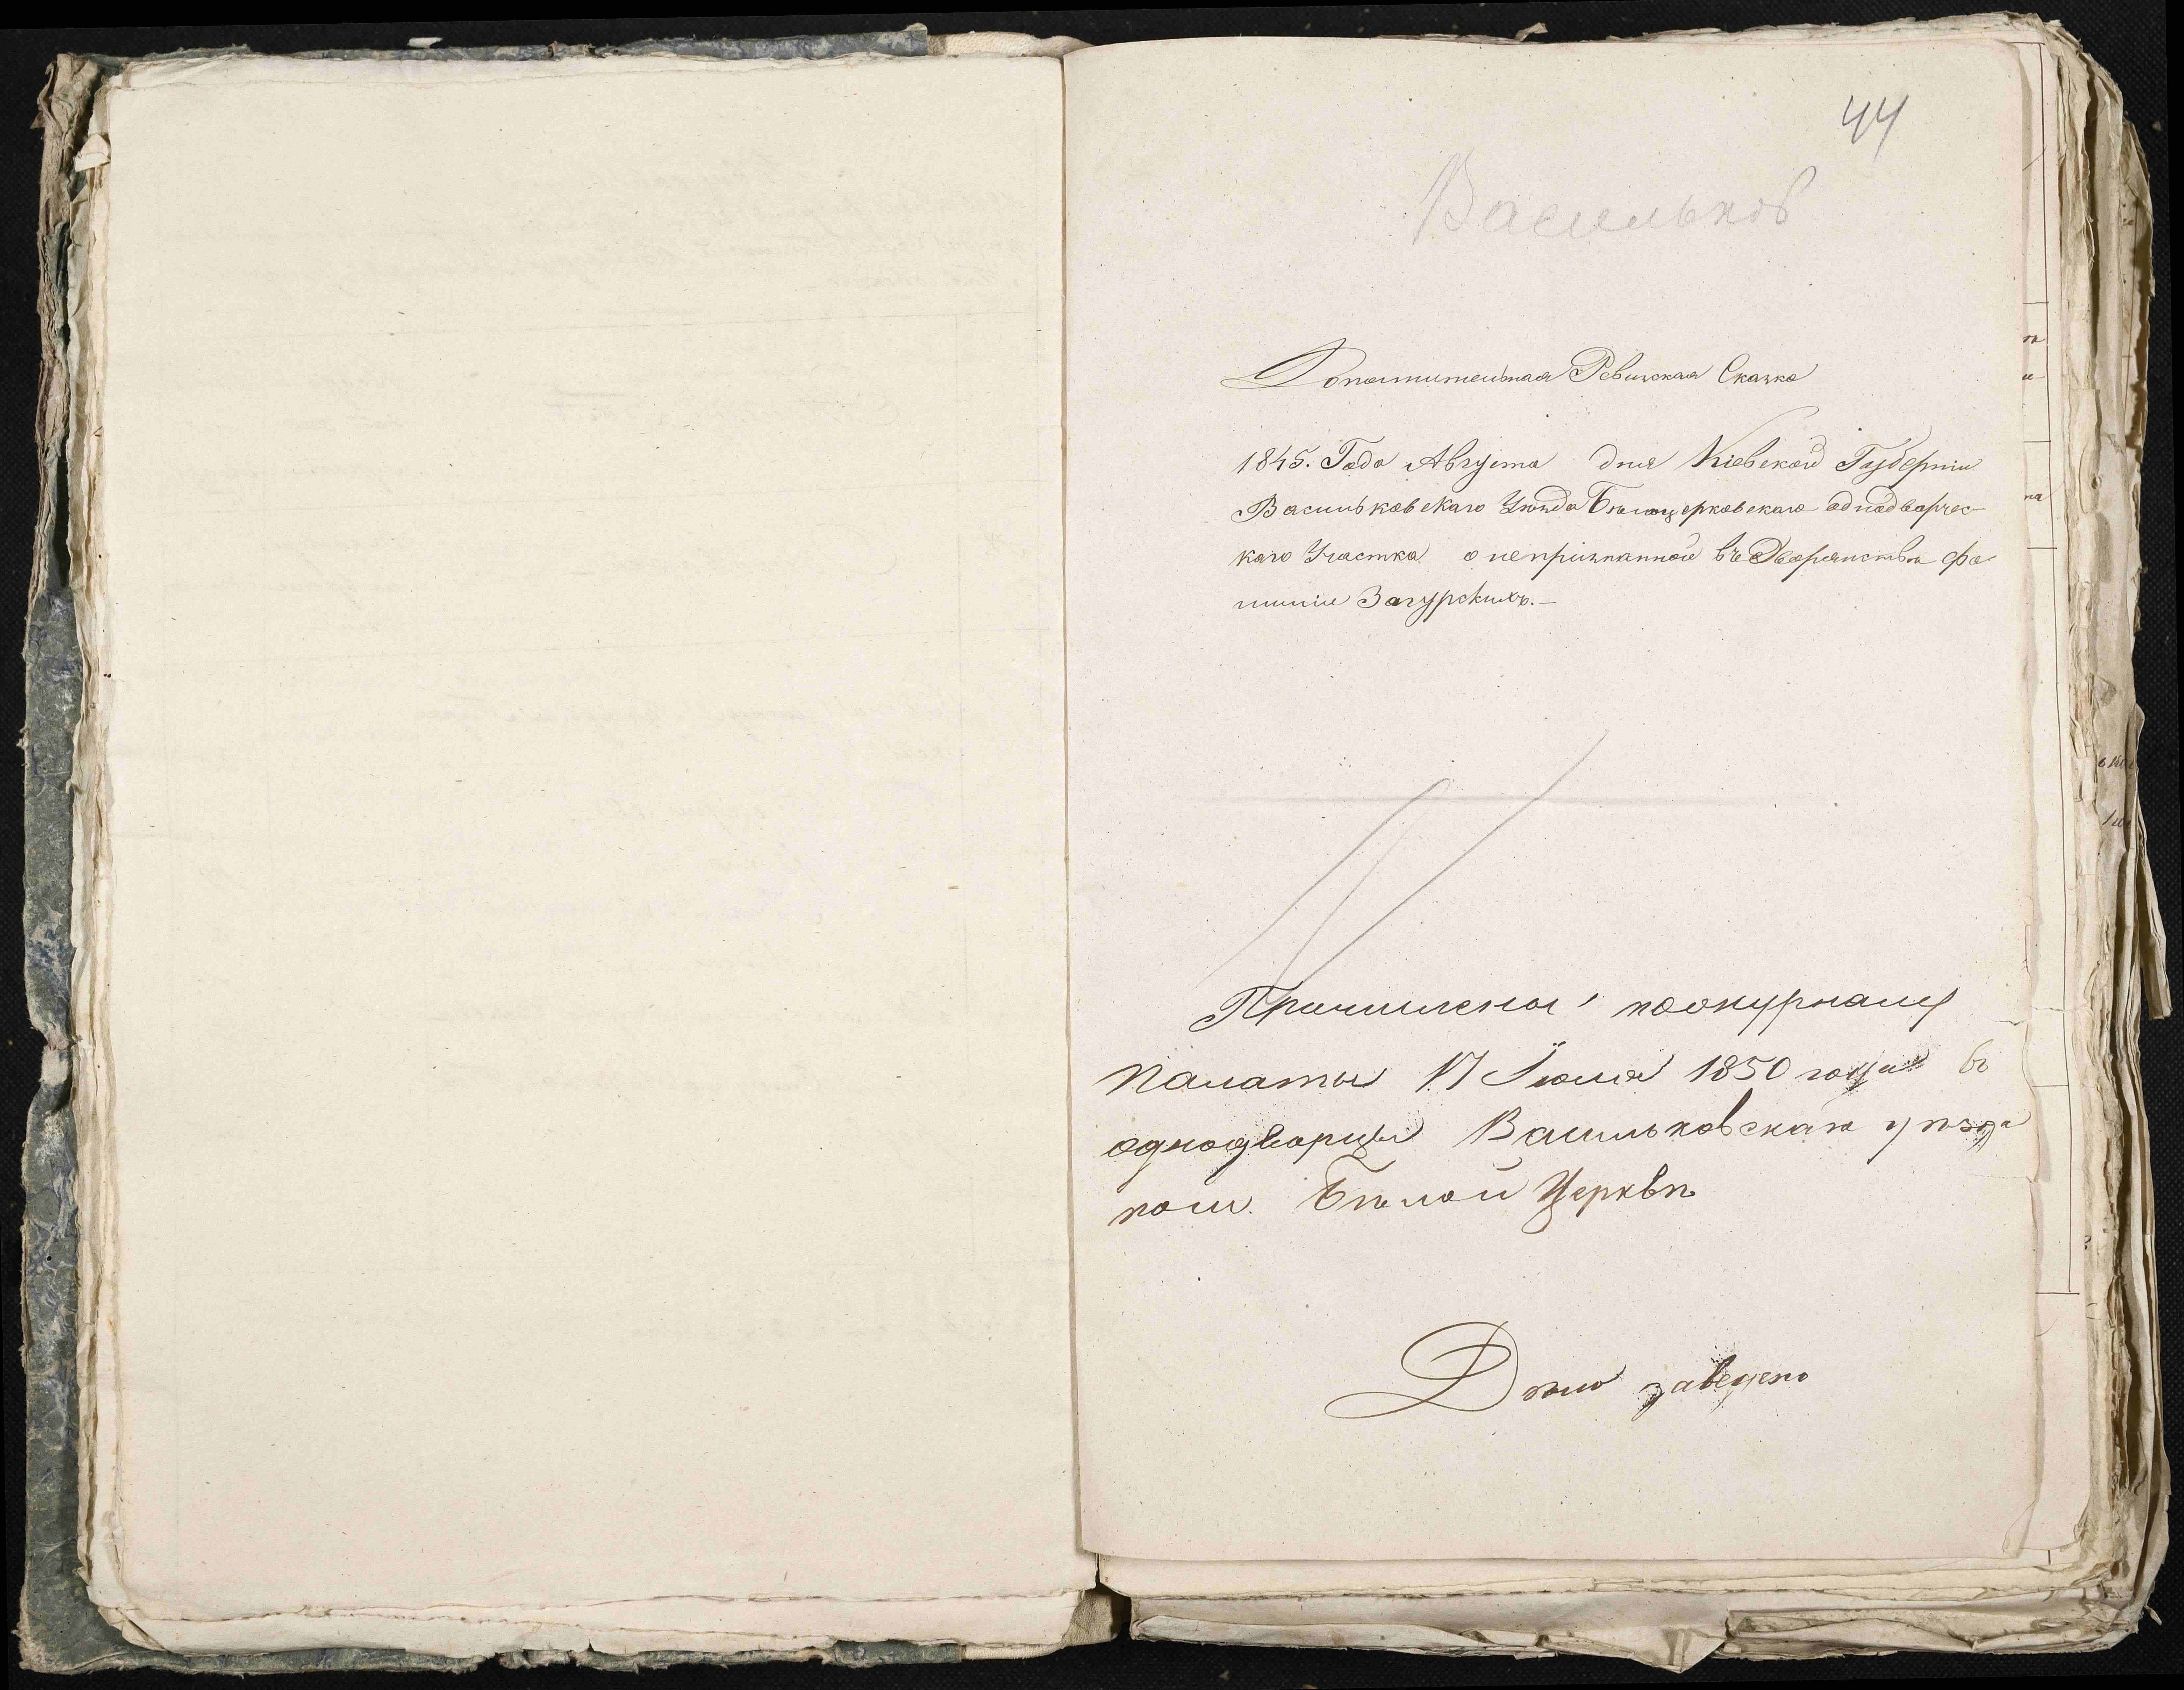 44
Васильков
Дополнительная Ревизская Сказка
1845. Года Августа дня Кіевской Губерніи
Васильковскаго Уѣзда Бѣлоцерковскаго однодворчес-
каго Участка о непризнанной въ Дворянствѣ фа
миліи Загурскихъ.—
Причислены по журналу
палаты 17 Іюля 1850 года въ
однодворцы Васильковскаго уѣзда
пом. Бѣлой Церквѣ
Дѣло заведено